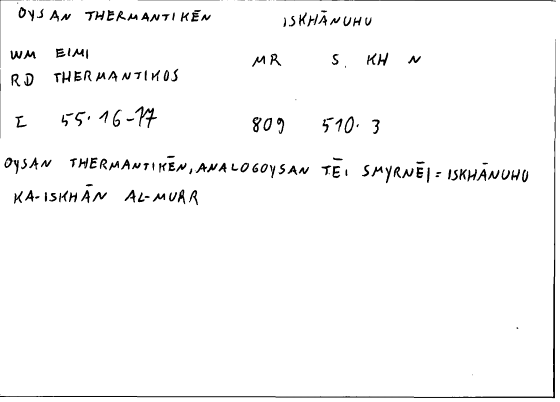 OYSAN THERMANTIKĒN ISKHĀNUHU
WM EIMI MR S. KH N
RD THERMANTIKOS
I 55.16-17 809 510.3
OYSAN THERMANTIKĒN, ANALOGOYSAN TĒI SMYRNĒI = ISKHĀNUHU
KA-ISKHĀN AL-MURR